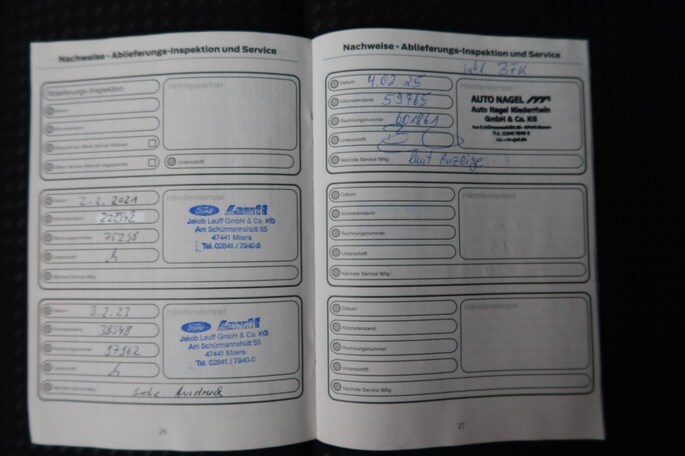 Nachweise - Ablieferungs-Inspektion und Service
Ablieferungs-Inspektion
Vertragspartner
Unterschrift
Datum 2.2.2021
Händlerstempel
22042
75295
Ford Lauff
Jakob Lauff GmbH & Co. KG
Am Schürmannshütt 55
47441 Moers
Tel. 02841 / 7940-0
Nächste Service fällig:
Datum 3.2.23
Händlerstempel
38348
97962
Unterschrift
Ford Lauff
Jakob Lauff GmbH & Co. KG
Am Schürmannshütt 55
47441 Moers
Tel. 02841 / 7940-0
Nächste Service fällig: siehe Ausdruck
26
Nachweise - Ablieferungs-Inspektion und Service
Datum 4.02.25
Kilometerstand 59765
Rechnungsnummer 601861
Unterschrift
Händlerstempel
AUTO NAGEL
Auto Nagel Niederrhein
GmbH & Co. KG
Nächste Service fällig: laut Anzeige
Datum
Kilometerstand
Rechnungsnummer
Unterschrift
Händlerstempel
Nächste Service fällig:
Datum
Kilometerstand
Rechnungsnummer
Unterschrift
Händlerstempel
Nächste Service fällig:
27